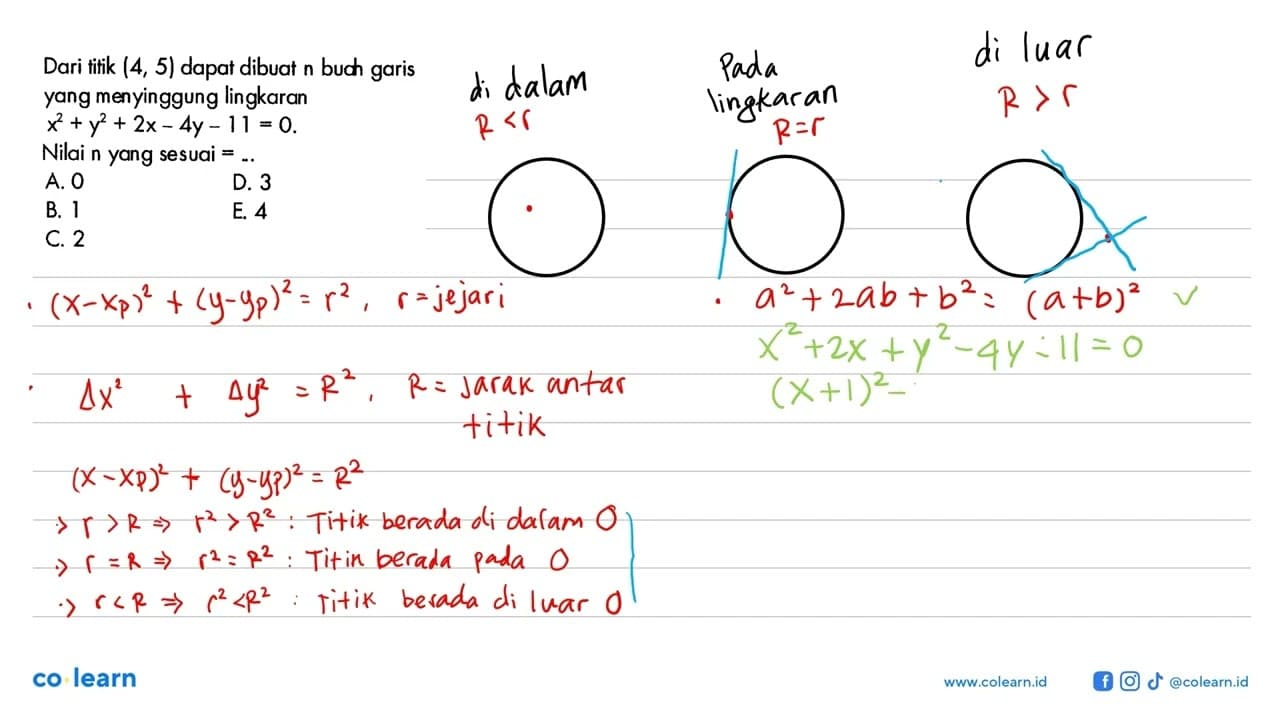 Dari titik (4, 5) dapat dibuat n buah garis
yang menyinggung lingkaran
x² + y² + 2x – 4y – 11 = 0.
Nilai n yang sesuai = ...
A. 0 D. 3
B. 1 E. 4
C. 2
di dalam
R < r
Pada
lingkaran
R = r
di luar
R > r
• (x-xp)² + (y-yp)² = r², r = jejari
• Δx² + Δy² = R², R = jarak antar
titik
(x-xp)² + (y-yp)² = R²
•> r > R ⇒ r² > R² : Titik berada di dalam O
•> r = R ⇒ r² = R² : Titin berada pada O
•> r < R ⇒ r² < R² : Titik berada di luar O
• a² + 2ab + b² = (a+b)² ✓
x² + 2x + y² - 4y - 11 = 0
(x+1)² -
co learn
www.colearn.id
@colearn.id